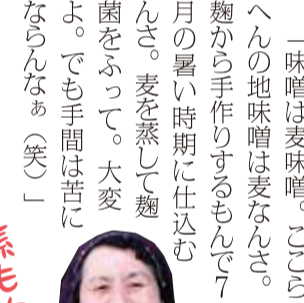 「味噌は麦味噌。ここら
へんの地味噌は麦なんさ。
麹から手作りするもんで7
月の暑い時期に仕込む
んさ。麦を蒸して麹
菌をふって。大変
よ。でも手間は苦に
ならんなぁ（笑）」